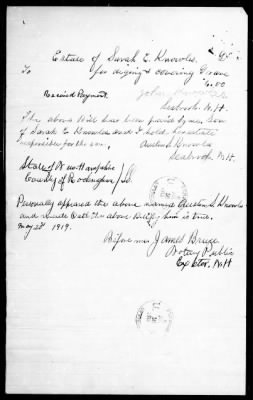 Estate of Sarah E. Knowles
To for digging & covering Grave
6.00
Received Payment.
John Knowles
Seabrook N.H.
The above Bill has been paid by me, son
of Sarah E Knowles and I hold
responsible for the
Knowles
Seabrook, N.H.
State of New Hampshire
County of Rockingham SS.
Personally appeared the above named Knowles
and made oath the above Bill by him is true.
May 28 1919.
Before me James Brugge
Notary Public
Exeter, N.H